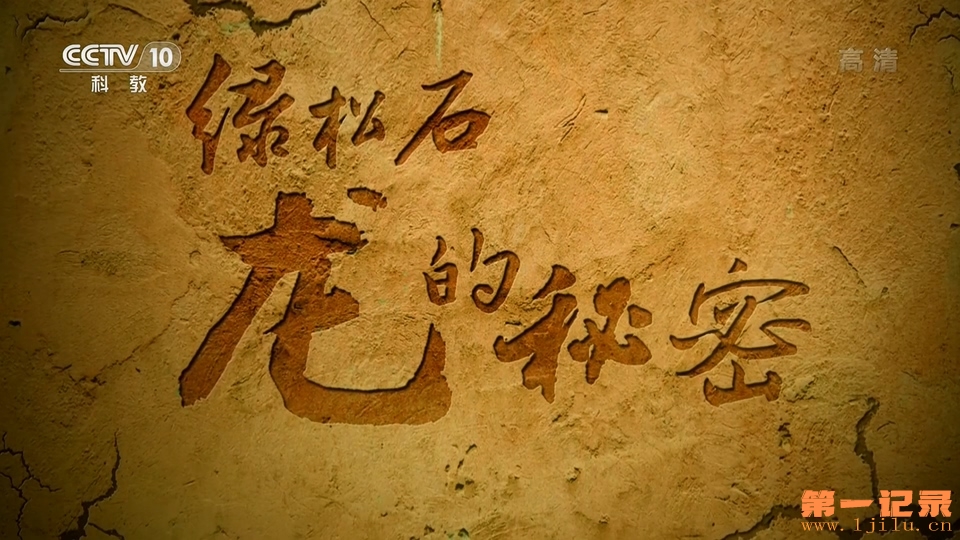 CCTV 10
科教
高清
绿松石
龙的秘密
第一记录
www.1jilu.cn